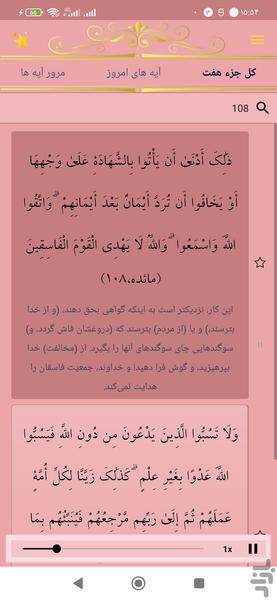 ۱۵:۵۴
66
4G
4G
کل جزء هفت
آیه های امروز
مرور آیه ها
108
ذَٰلِكَ أَدْنَىٰ أَن يَأْتُوا بِالشَّهَادَةِ عَلَىٰ وَجْهِهَا
أَوْ يَخَافُوا أَن تُرَدَّ أَيْمَانٌ بَعْدَ أَيْمَانِهِمْ ۗ وَاتَّقُوا
اللَّهَ وَاسْمَعُوا ۗ وَاللَّهُ لَا يَهْدِي الْقَوْمَ الْفَاسِقِينَ
(مائده،۱۰۸)
این کار، نزدیکتر است به اینکه گواهی بحق دهند، (و از خدا
بترسند)، و یا (از مردم) بترسند که (دروغشان فاش گردد، و)
سوگندهایی جای سوگندهای آنها را بگیرد. از (مخالفت) خدا
بپرهیزید، و گوش فرا دهید! و خداوند، جمعیت فاسقان را
هدایت نمی‌کند.
وَلَا تَسُبُّوا الَّذِينَ يَدْعُونَ مِن دُونِ اللَّهِ فَيَسُبُّوا
اللَّهَ عَدْوًا بِغَيْرِ عِلْمٍ ۗ كَذَٰلِكَ زَيَّنَّا لِكُلِّ أُمَّةٍ
عَمَلَهُمْ ثُمَّ إِلَىٰ رَبِّهِم مَّرْجِعُهُمْ فَيُنَبِّئُهُم بِمَا
1x
بازار